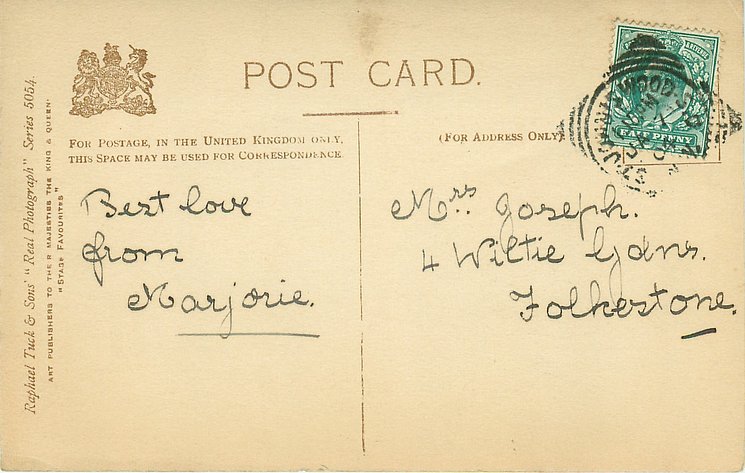 POST CARD.
FOR POSTAGE, IN THE UNITED KINGDOM ONLY,
THIS SPACE MAY BE USED FOR CORRESPONDENCE
(FOR ADDRESS ONLY)
Best love
from
Marjorie.
Mrs Joseph.
4 Wiltie Gdns.
Folkestone.
HALF PENNY
Raphael Tuck & Sons' "Real Photograph" Series 5054.
ART PUBLISHERS TO THEIR MAJESTIES THE KING & QUEEN.
"STAGE FAVOURITES"